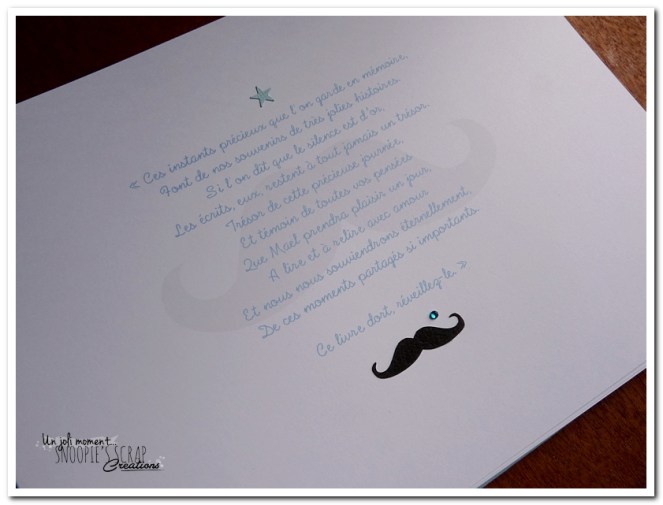 « Ces instants précieux que l'on garde en mémoire.
Font de nos souvenirs de très jolies histoires.
Si l'on dit que le silence est d'or,
Les écrits, eux, restent à tout jamais un trésor.
Trésor de cette précieuse journée,
Et témoin de toutes vos pensées
Que Mael prendra plaisir un jour,
A lire et à relire avec amour
Et nous nous souviendrons éternellement,
De ces moments partagés si importants.
Ce livre dort, réveillez-le. »
Un joli moment...
SNOOPIE'S SCRAP
Creations